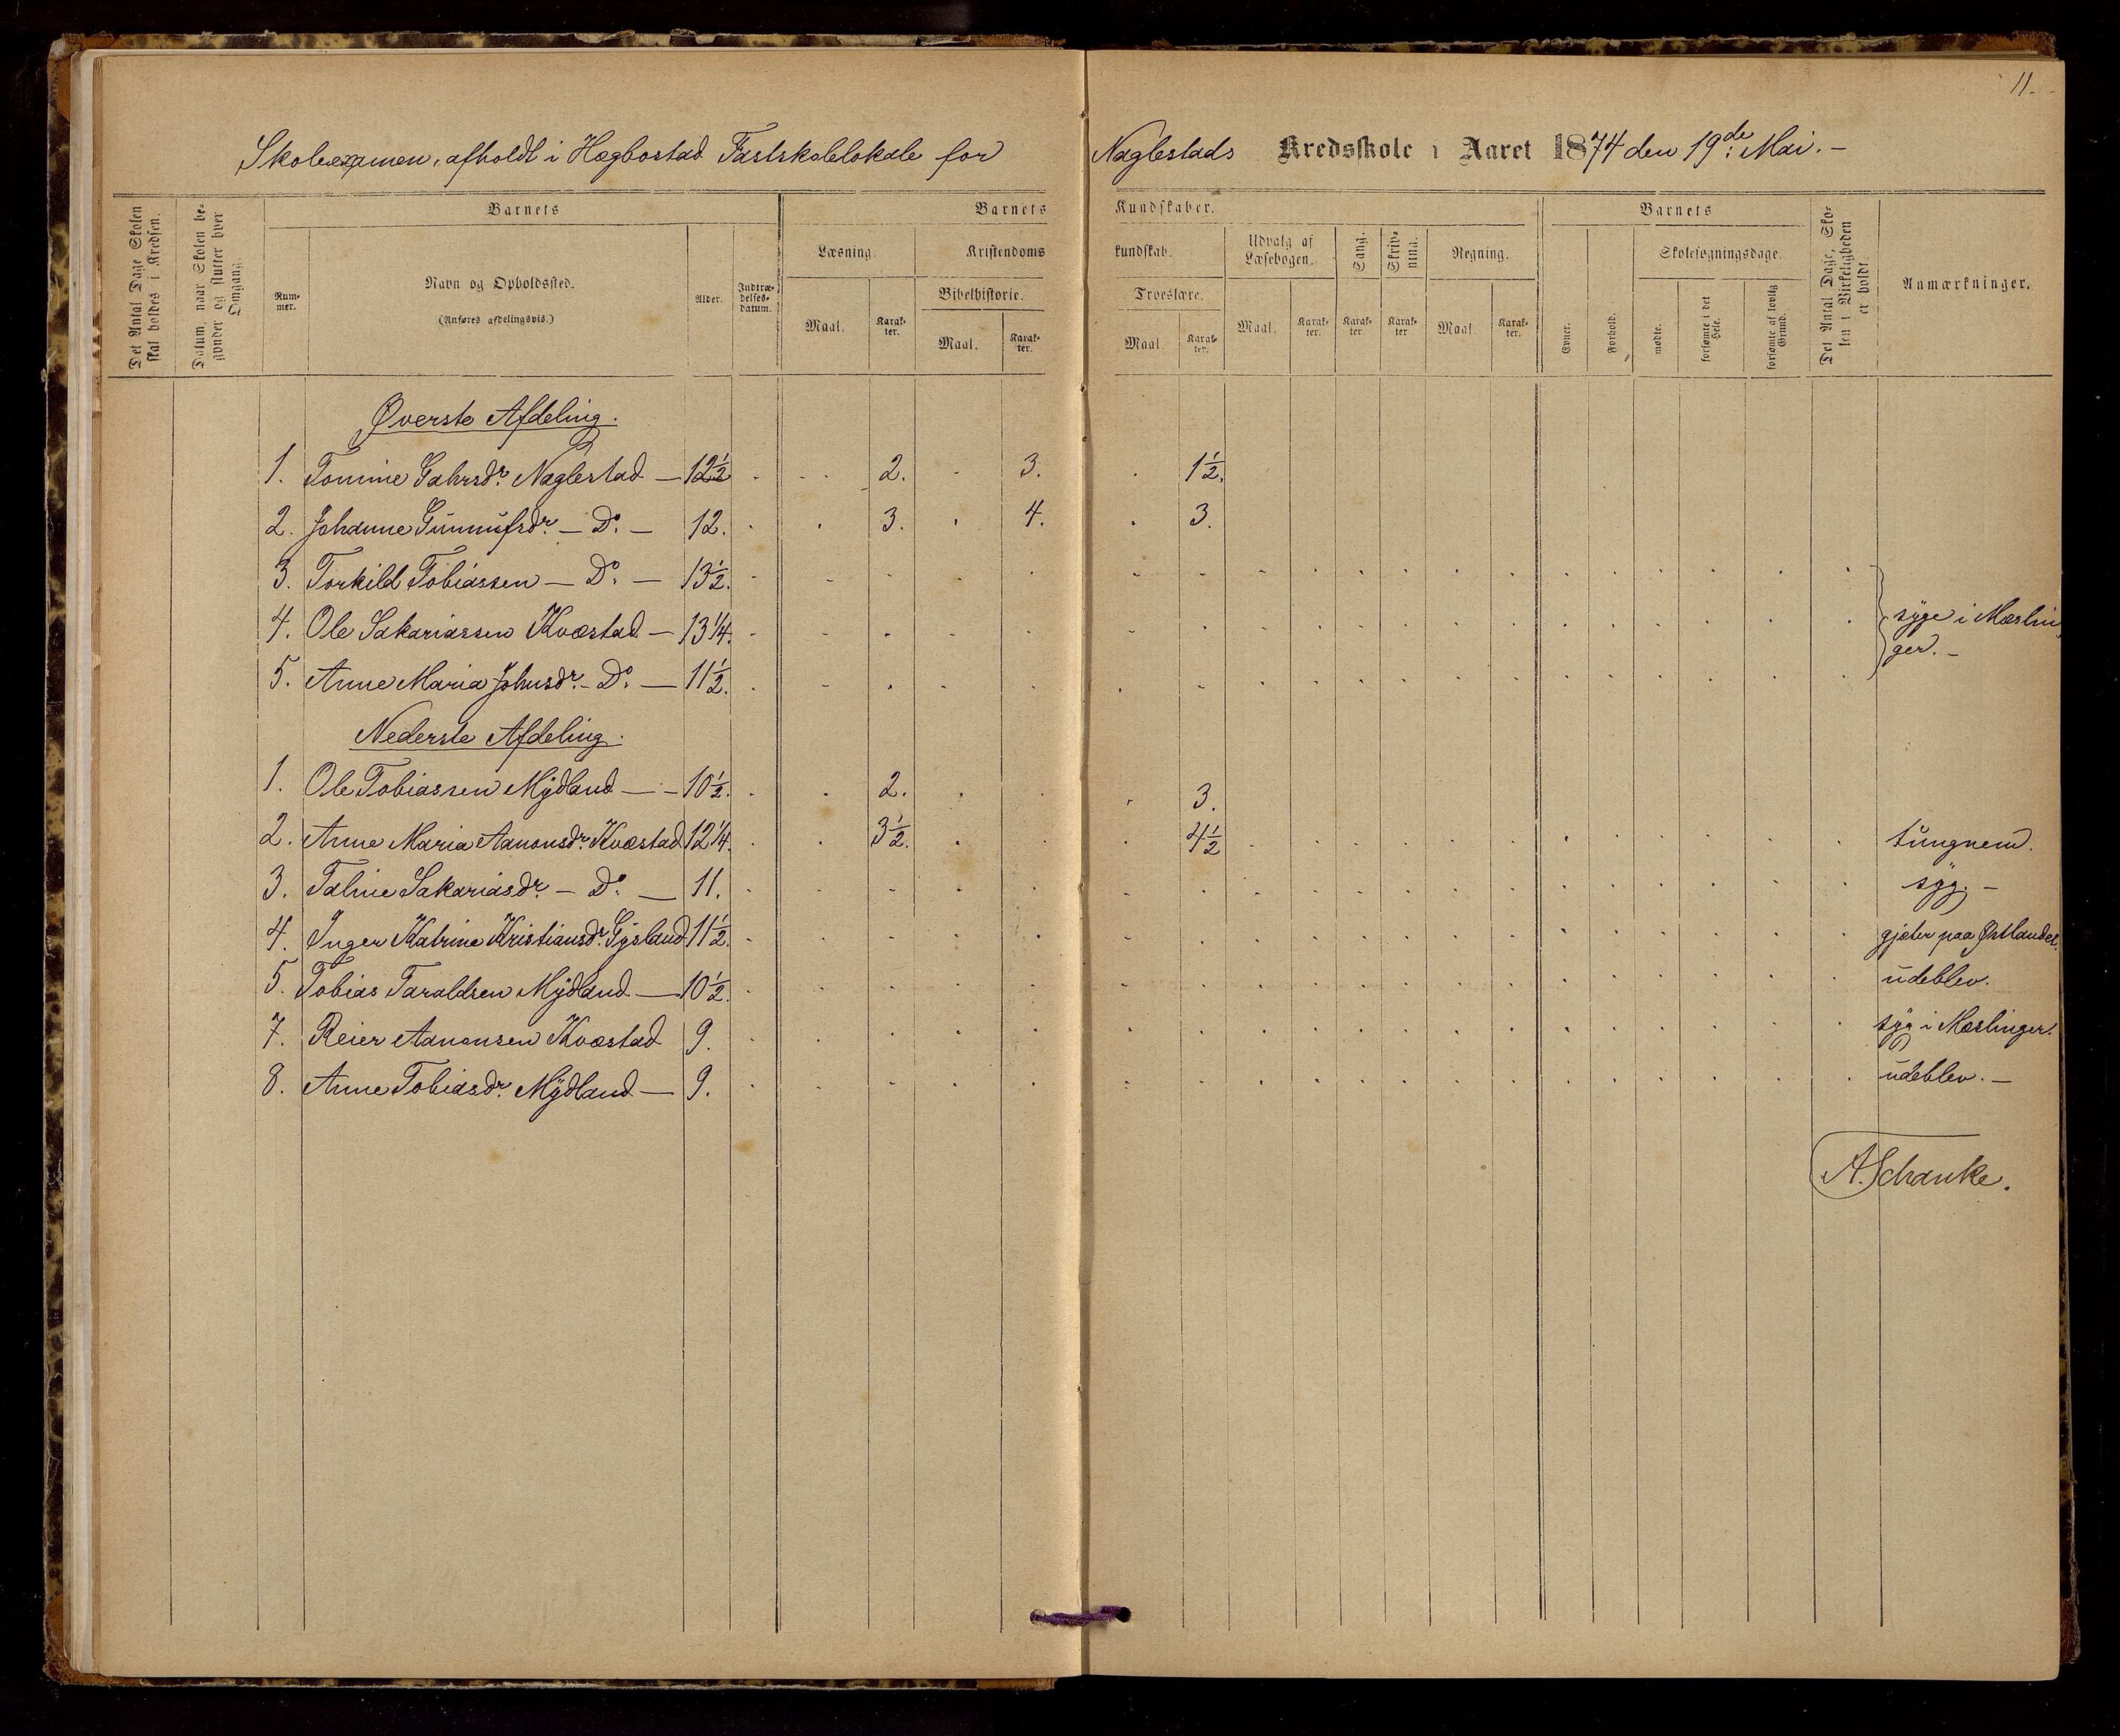 11.
Skoleexamen, afholdt i Hægbostad Fastskolelokale for Naglestads Kredsskole i Aaret 1874 den 19de Mai. –
Det Antal Dage Skolen skal holdes i Kredsen.
Datum, naar Skolen begynder og slutter hver Omgang.
Barnets
Nummer.
Navn og Opholdssted.
(Anføres afdelingsvis.)
Alder.
Indtrædelsesdatum.
Barnets Kundskaber.
Læsning.
Maal.
Karakter.
Kristendomskundskab.
Bibelhistorie.
Maal.
Karakter.
Troeslære.
Maal.
Karakter.
Udvalg af Læsebogen.
Maal.
Karakter.
Sang.
Karakter.
Skrivning.
Karakter
Regning.
Maal.
Karakter.
Barnets
Evner.
Forhold.
Skolesøgningsdage.
mødte.
forsømte i det Hele.
forsømte af lovlig Grund.
Det Antal Dage, Skolen i Virkeligheden er holdt.
Anmærkninger.
Øverste Afdeling.
1. Tomine Gahrsdr. Naglestad — 12½ 2. 3. 1½.
2. Johanne Gunnufsdr. — Do. — 12. 3. 4. 3.
3. Torkild Tobiassen — Do. — 13½.
4. Ole Sakariassen Kvæstad — 13¼. syge i Mæslin
ger. –
5. Anne Maria Johnsdr. – Do. — 11½.
Nederste Afdeling.
1. Ole Tobiassen Mydland — – 10½. 2. 3.
2. Anne Maria Aanonsdr. Kvæstad 12¼. 3½. 4½ tungnem.
3. Taline Sakariasdr – Do. — 11. syg. –
4. Inger Katrine Kristiansdr. Gysland 11½. gjæter paa Østlandet.
5. Tobias Taraldsen Mydland — 10½. udeblev.
7. Reier Aanonsen Kvæstad 9. syg i Mæslinger.
8. Anne Tobiasdr. Mydland — 9. udeblev. –
A. Schanke.